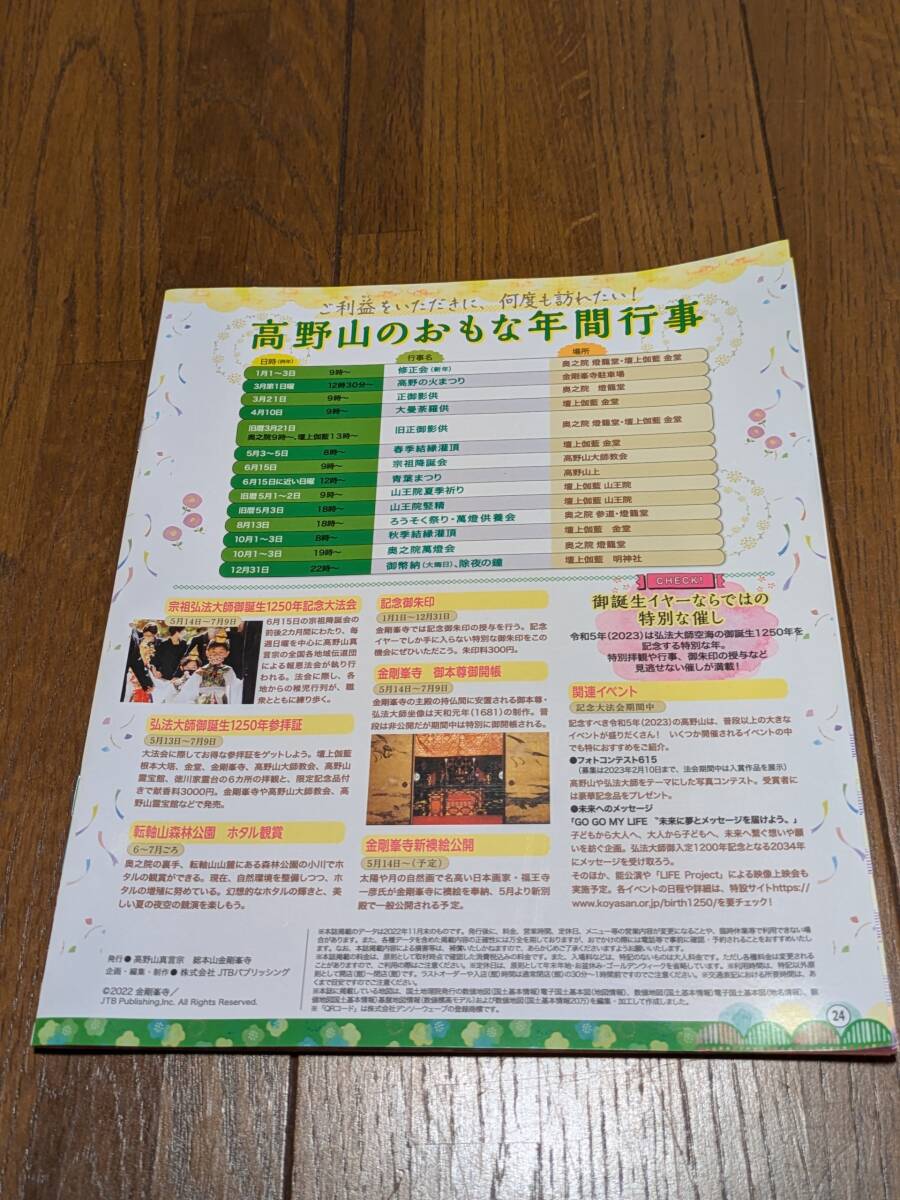 ご利益をいただきに、何度も訪れたい!
高野山のおもな年間行事
日時(例年) 行事名 場所
1月1〜3日 9時〜 修正会(新年) 奥之院 燈籠堂・壇上伽藍 金堂
3月第1日曜 12時30分〜 高野の火まつり 金剛峯寺駐車場
3月21日 9時〜 正御影供 奥之院 燈籠堂
4月10日 9時〜 大曼荼羅供 壇上伽藍 金堂
旧暦3月21日
奥之院9時〜、壇上伽藍13時〜 旧正御影供 奥之院 燈籠堂・壇上伽藍 金堂
5月3〜5日 8時〜 春季結縁灌頂 壇上伽藍 金堂
6月15日 9時〜 宗祖降誕会 高野山大師教会
6月15日に近い日曜 12時〜 青葉まつり 高野山上
旧暦5月1〜2日 9時〜 山王院夏季祈り 壇上伽藍 山王院
旧暦5月3日 18時〜 山王院竪精 壇上伽藍 山王院
8月13日 18時〜 ろうそく祭り・萬燈供養会 奥之院 参道・燈籠堂
10月1〜3日 8時〜 秋季結縁灌頂 壇上伽藍 金堂
10月1〜3日 19時〜 奥之院萬燈会 奥之院 燈籠堂
12月31日 22時〜 御幣納(大晦日)、除夜の鐘 壇上伽藍 明神社
宗祖弘法大師御誕生1250年記念大法会
5月14日〜7月9日
6月15日の宗祖降誕会の
前後2カ月間にわたり、毎
週日曜を中心に高野山真
言宗の全国各地域伝道団
による報恩法会が執り行
われる。法会に際し、各
地からの稚児行列が、職
衆とともに練り歩く。
弘法大師御誕生1250年参拝証
5月13日〜7月9日
大法会に際してお得な参拝証をゲットしよう。壇上伽藍
根本大塔、金堂、金剛峯寺、高野山大師教会、高野山
霊宝館、徳川家霊台の6カ所の拝観と、限定記念品付
きで献香料3000円。金剛峯寺や高野山大師教会、高
野山霊宝館などで発売。
転軸山森林公園 ホタル観賞
6〜7月ごろ
奥之院の裏手、転軸山山麓にある森林公園の小川でホ
タルの観賞ができる。現在、自然環境を整備しつつ、ホ
タルの増殖に努めている。幻想的なホタルの輝きと、美
しい夏の夜空の競演を楽しもう。
記念御朱印
1月1日〜12月31日
金剛峯寺では記念御朱印の授与を行う。記念
イヤーでしか手に入らない特別な御朱印をこの
機会にぜひいただこう。朱印料300円。
金剛峯寺 御本尊御開帳
5月14日〜7月9日
金剛峯寺の主殿の持仏間に安置される御本尊・
弘法大師坐像は天和元年(1681)の制作。普
段は非公開だが期間中は特別に御開帳される。
金剛峯寺新襖絵公開
5月14日〜(予定)
太陽や月の自然画で名高い日本画家・福王寺
一彦氏が金剛峯寺に襖絵を奉納、5月より新別
殿で一般公開される予定。
CHECK!
御誕生イヤーならではの
特別な催し
令和5年(2023)は弘法大師空海の御誕生1250年を
記念する特別な年。
特別拝観や行事、御朱印の授与など
見逃せない催しが満載!
関連イベント
記念大法会期間中
記念すべき令和5年(2023)の高野山は、普段以上の大きな
イベントが盛りだくさん! いくつか開催されるイベントの中
でも特におすすめをご紹介。
●フォトコンテスト615
(募集は2023年2月10日まで、法会期間中は入賞作品を展示)
高野山や弘法大師をテーマにした写真コンテスト。受賞者に
は豪華記念品をプレゼント。
●未来へのメッセージ
「GO GO MY LIFE “未来に夢とメッセージを届けよう。」
子どもから大人へ、大人から子どもへ、未来へ繋ぐ想いや願
いを紡ぐ企画。弘法大師御入定1200年記念となる2034年
にメッセージを受け取ろう。
そのほか、能公演や「LIFE Project」による映像上映会も
実施予定。各イベントの日程や詳細は、特設サイトhttps://
www.koyasan.or.jp/birth1250/を要チェック!
発行● 高野山真言宗 総本山金剛峯寺
企画・編集・制作● 株式会社 JTBパブリッシング
©2022 金剛峯寺/
JTB Publishing,Inc. All Rights Reserved.
※本誌掲載のデータは2022年11月末のものです。発行後に、料金、営業時間、定休日、メニュー等の営業内容が変更になることや、臨時休業等で利用できない場
合があります。また、各種データを含めた掲載内容の正確性には万全を期しておりますが、おでかけの際には電話等で事前に確認・予約されることをおすすめいたし
ます。なお、本誌掲載内容による損害等は、補償いたしかねますので、あらかじめご了承くださいますようお願いいたします。
24